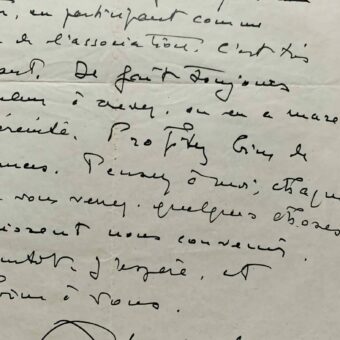 , en participant comme
de l'association. C'est très
ant. De goût toujours
à crever, on en a marre
. Profitez bien de
nces. Pensez à moi, chaque
vous venez quelques choses
issent nous convenir.
ntôt j'espère, et
bien à vous.